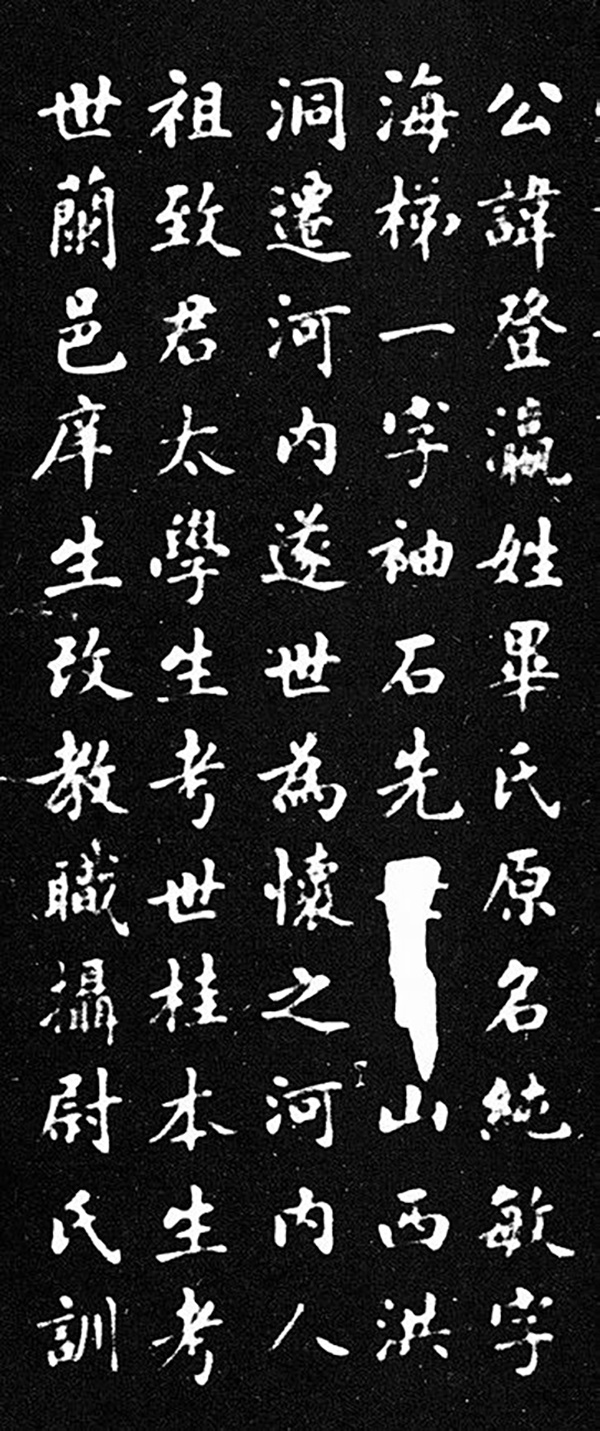 公諱登瀛姓畢氏原名純敏字
海梯一字袖石先山西洪
洞遷河內遂世為懷之河內人
祖致君太學生考世桂本生考
世蘭邑庠生改教職攝尉氏訓